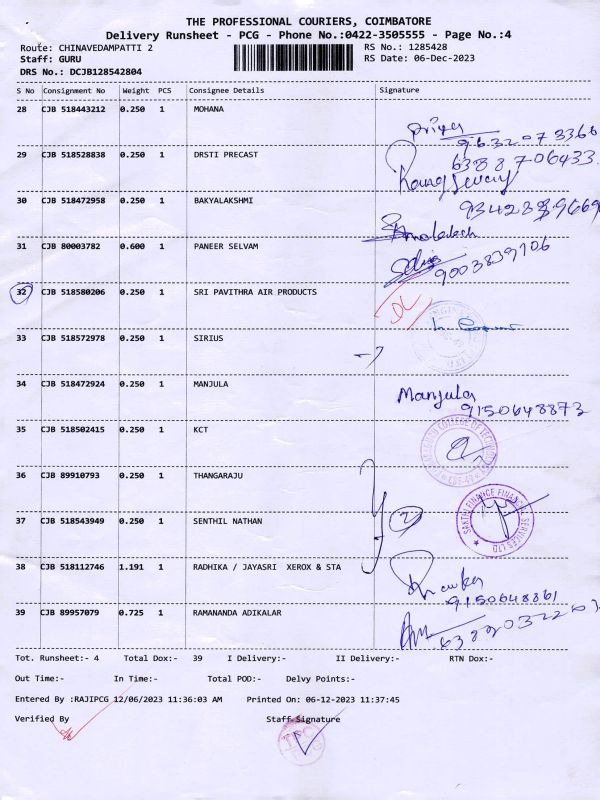 THE PROFESSIONAL COURIERS, COIMBATORE
Delivery Runsheet - PCG - Phone No.:0422-3505555 - Page No.:4
Route: CHINAVEDAMPATTI 2
RS No.: 1285428
Staff: GURU
RS Date: 06-Dec-2023
DRS No.: DCJB128542804
S No Consignment No Weight PCS Consignee Details Signature
28 CJB 518443212 0.250 1 MOHANA
Priya
9632073366
29 CJB 518528838 0.250 1 DRSTI PRECAST
6388706433
30 CJB 518472958 0.250 1 BAKYALAKSHMI
31 CJB 80003782 0.600 1 PANEER SELVAM
9003839106
32 CJB 518580206 0.250 1 SRI PAVITHRA AIR PRODUCTS
DL
33 CJB 518572978 0.250 1 SIRIUS
34 CJB 518472924 0.250 1 MANJULA
Manjula
9150648873
35 CJB 518502415 0.250 1 KCT
36 CJB 89910793 0.250 1 THANGARAJU
37 CJB 518543949 0.250 1 SENTHIL NATHAN
2
SAKTHI FINANCE FINANCIAL SERVICES LTD
38 CJB 518112746 1.191 1 RADHIKA / JAYASRI XEROX & STA
9150648861
39 CJB 89957079 0.725 1 RAMANANDA ADIKALAR
Tot. Runsheet:- 4 Total Dox:- 39 I Delivery:- II Delivery:- RTN Dox:-
Out Time:- In Time:- Total POD:- Delvy Points:-
Entered By :RAJIPCG 12/06/2023 11:36:03 AM Printed On: 06-12-2023 11:37:45
Verified By Staff Signature